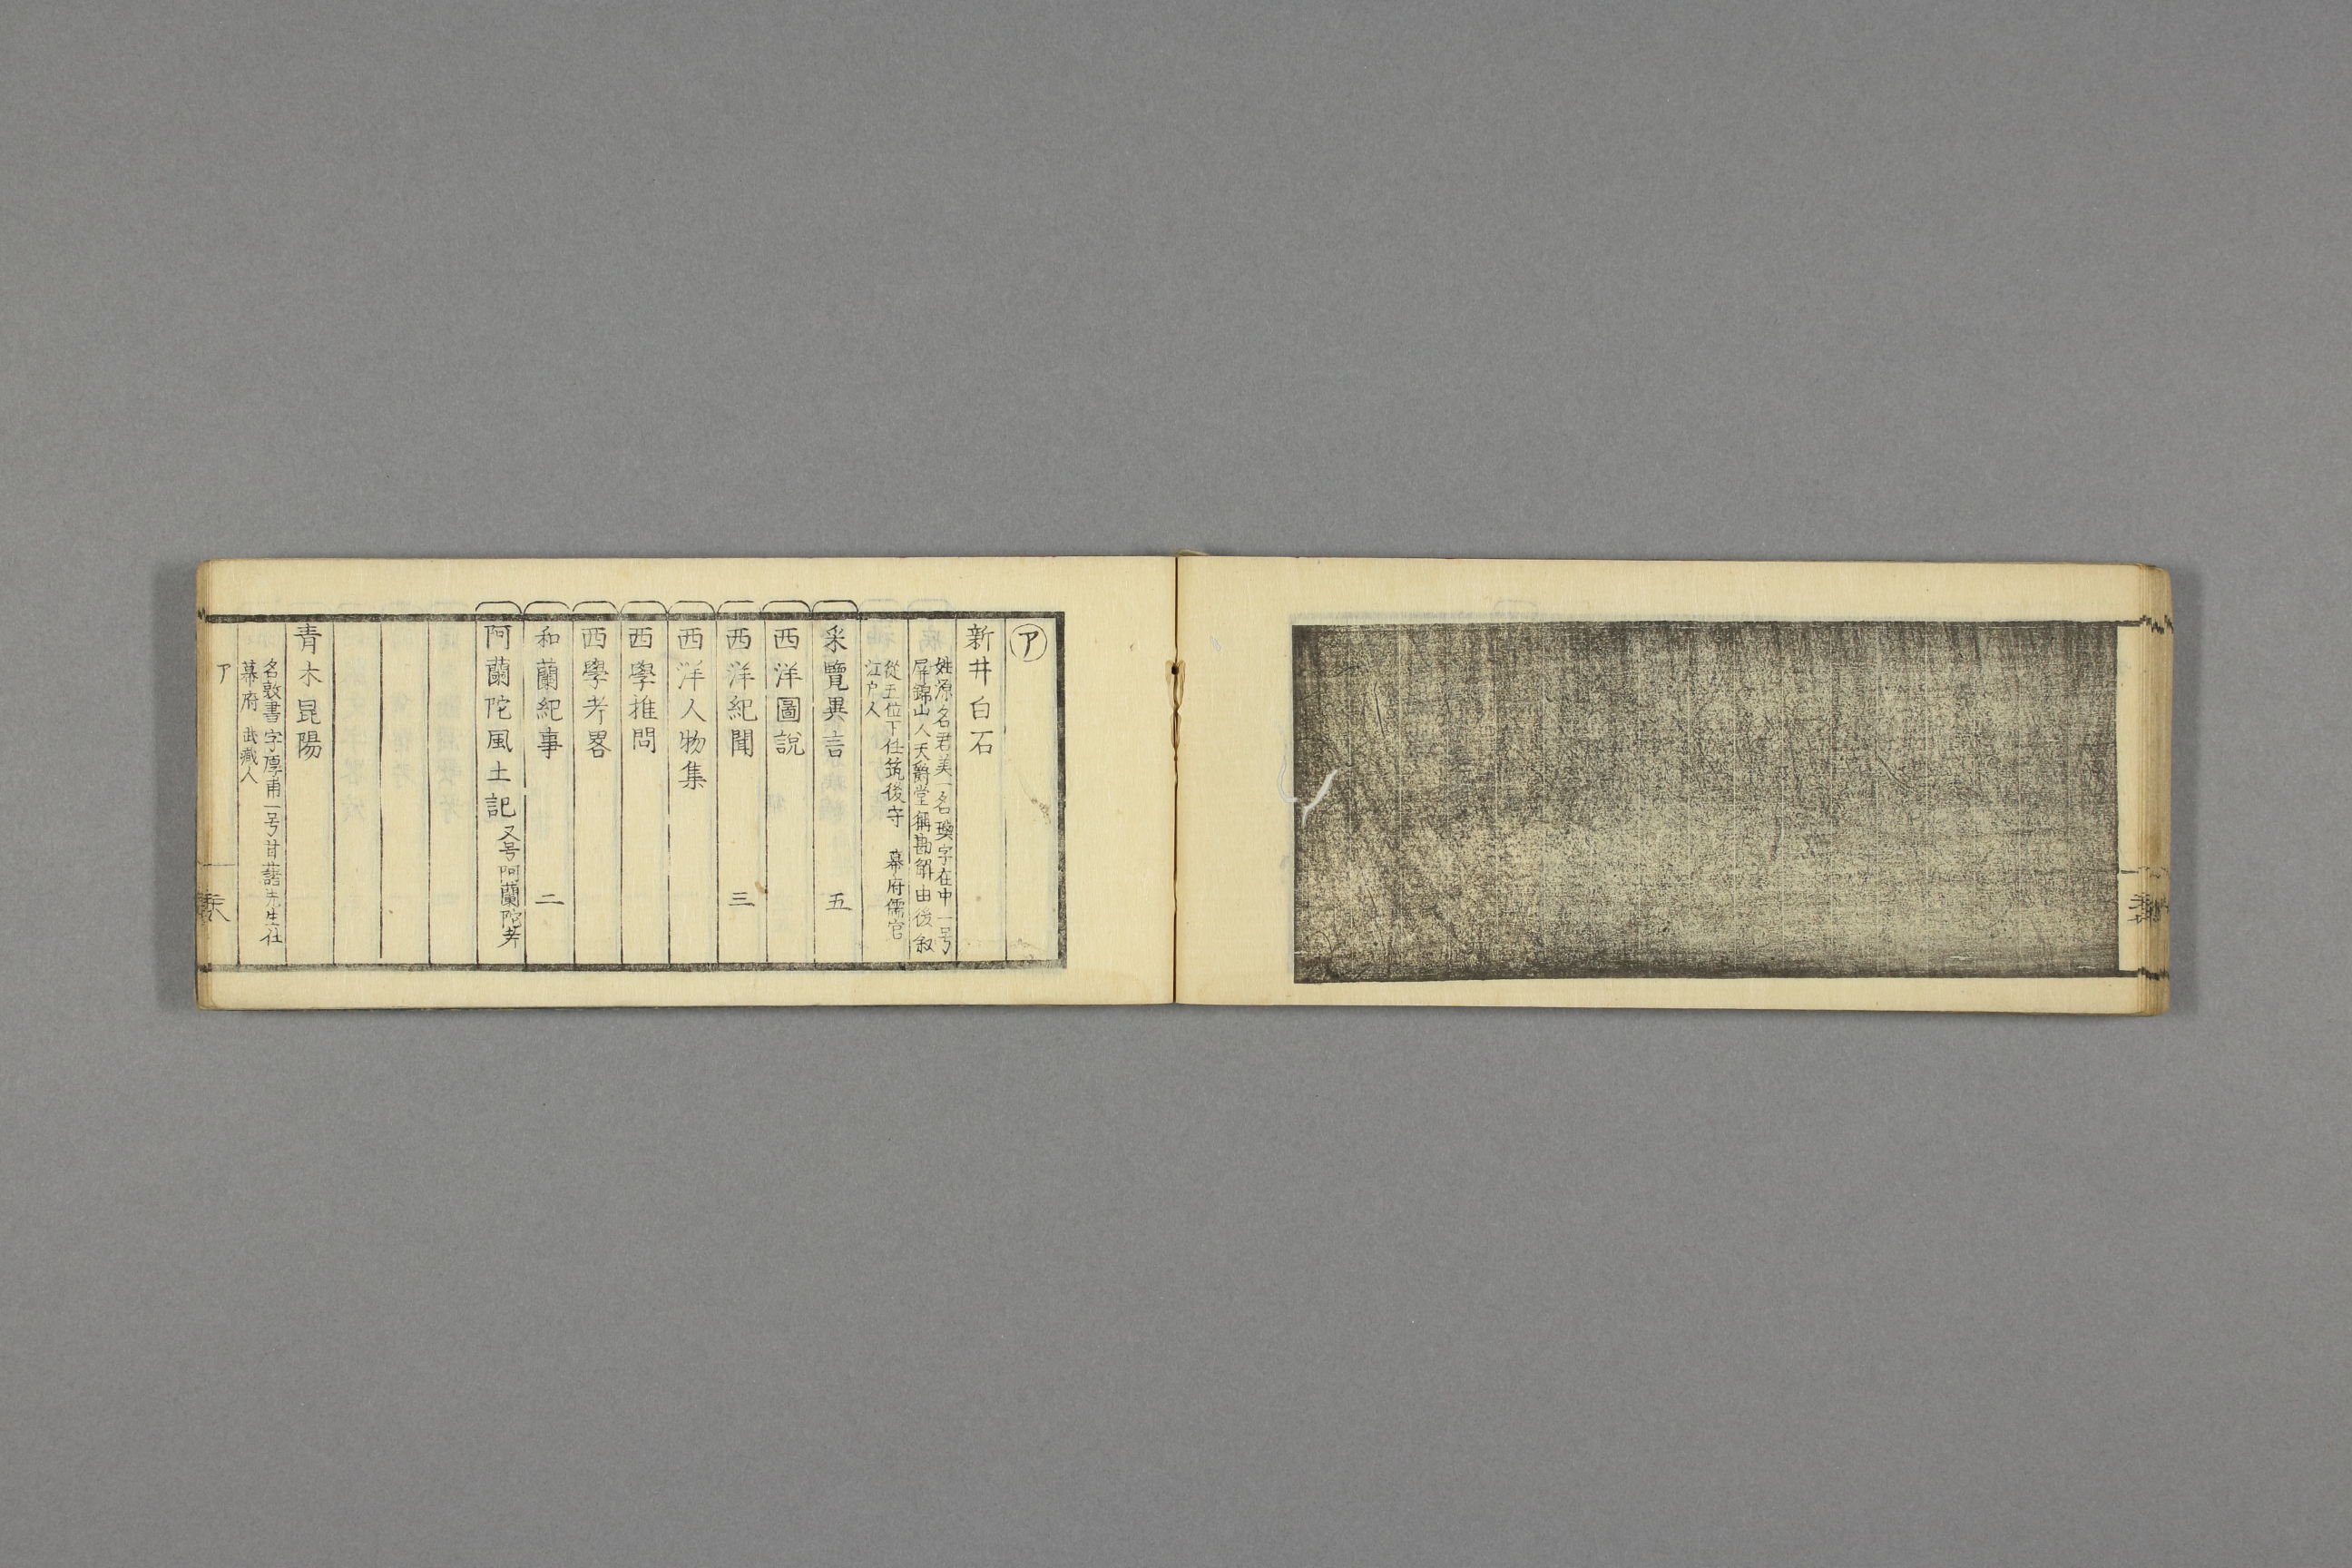 ア
新井白石
姓源名君美一名璵字在中一号
屏錦山人天爵堂稱勘解由後叙
從五位下任筑後守 幕府儒官
江戸人
采覽異言 五
西洋圖說
西洋紀聞 三
西洋人物集
西學推問
西學考畧
和蘭紀事 二
阿蘭陀風土記 又号阿蘭陀考
青木昆陽
名敦書字厚甫一号甘藷先生仕
幕府 武藏人
ア